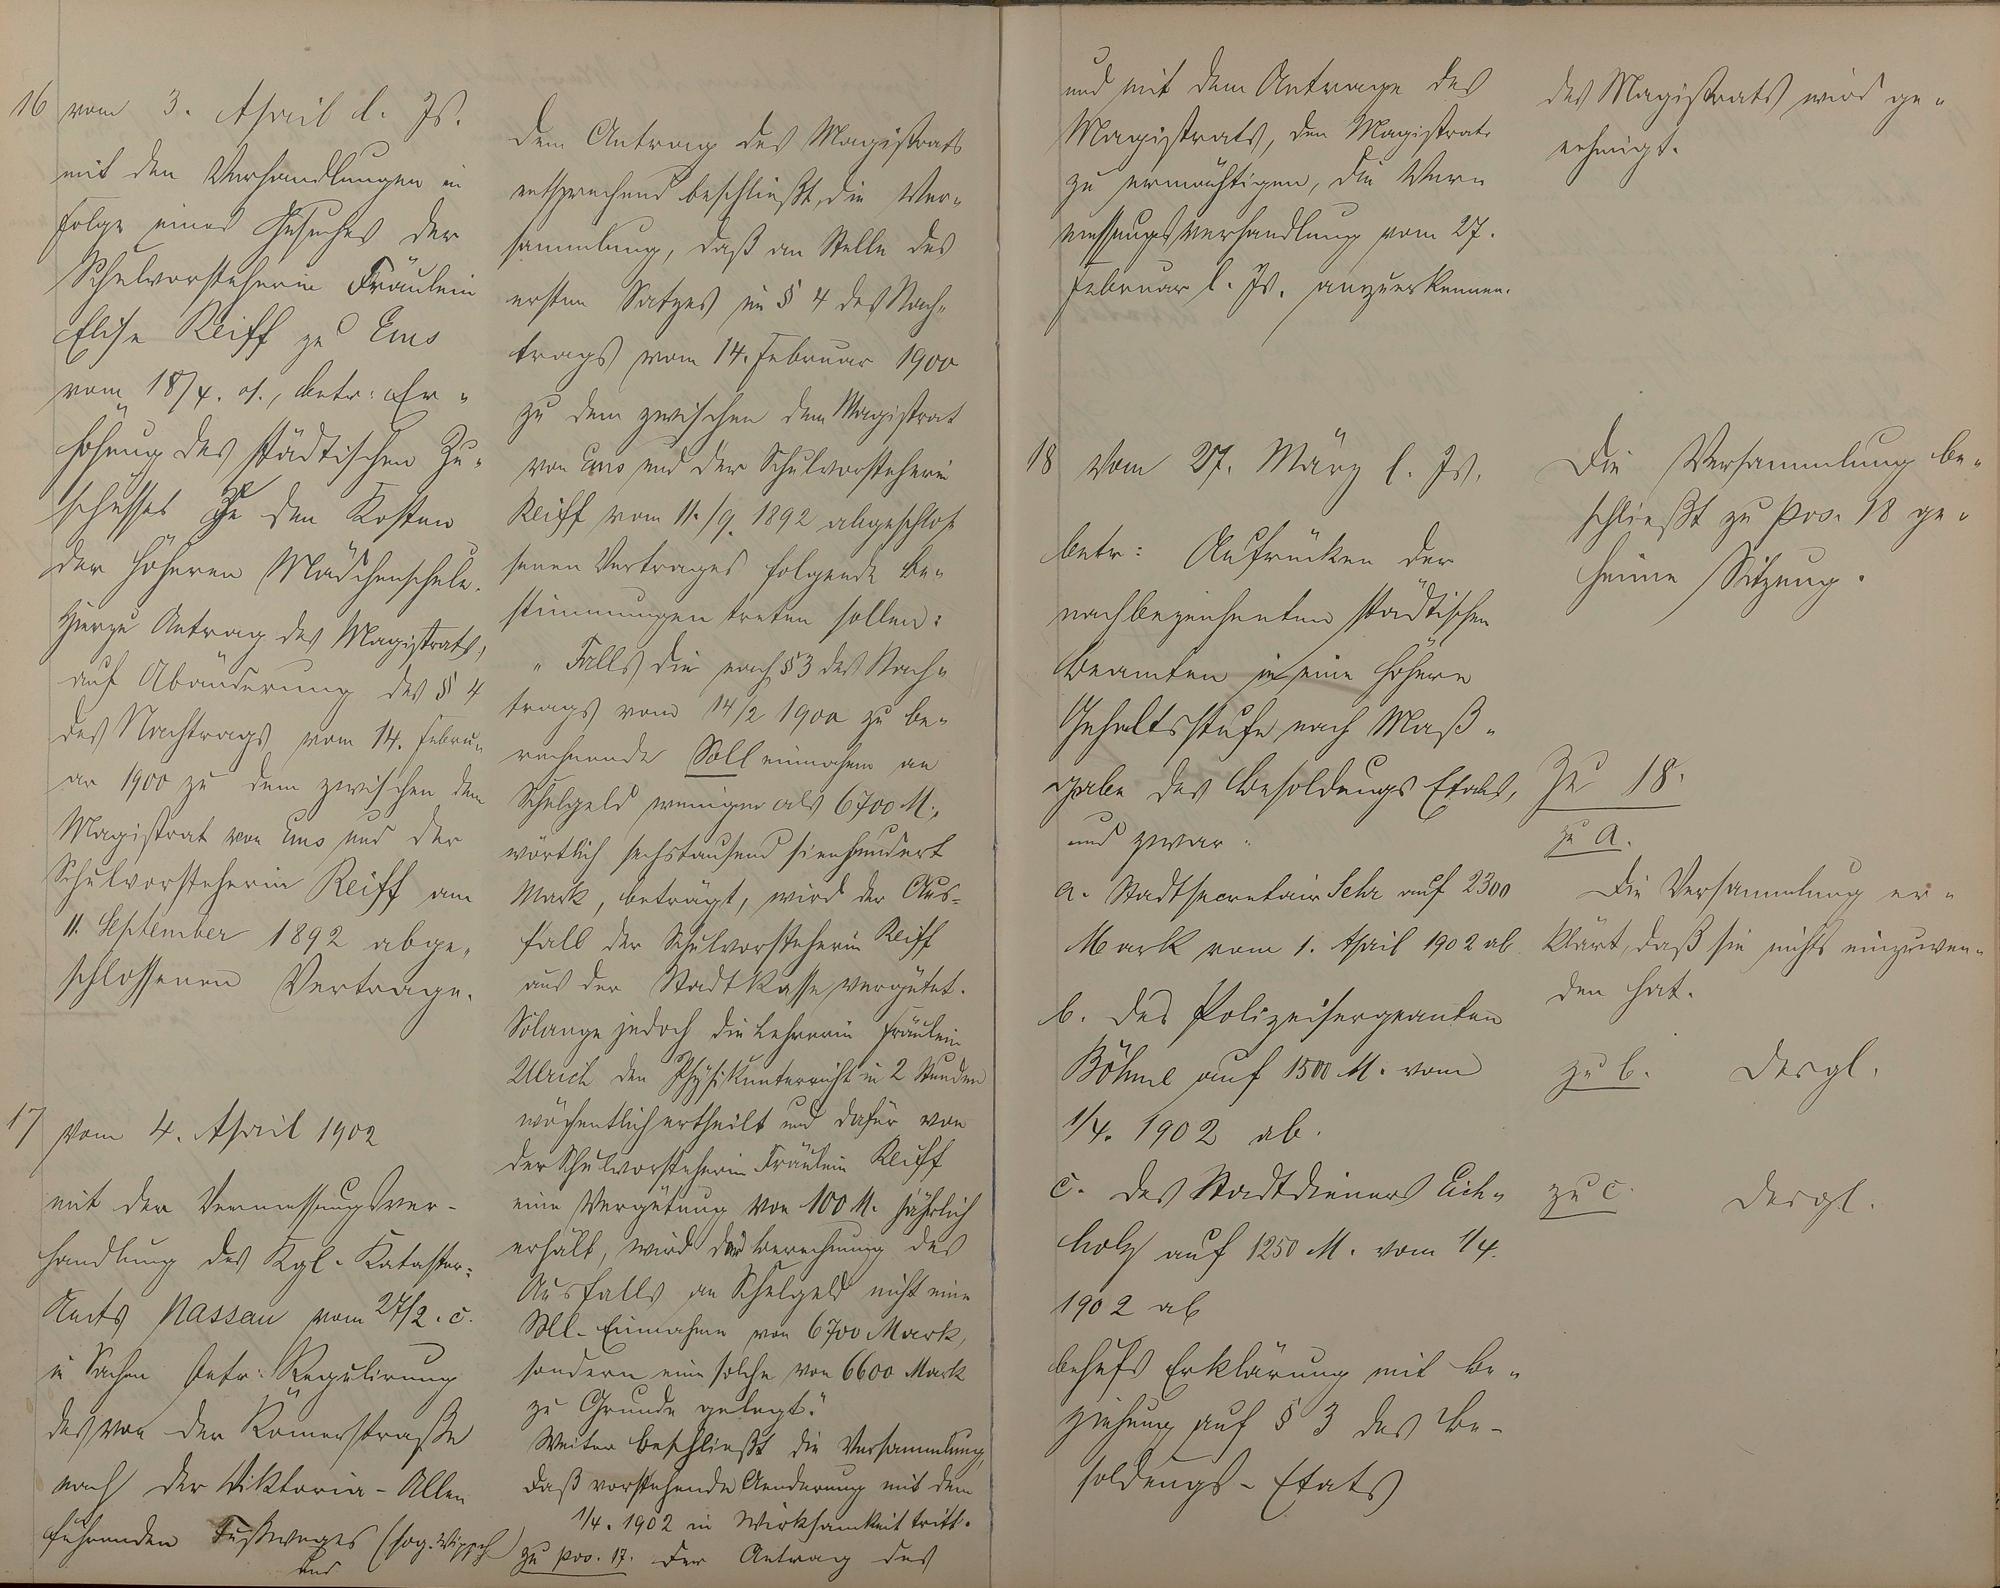 16 vom 3. April l. Js.
mit den Verhandlungen in
Folge eines Gesuches der
Schulvorsteherin Fräulein
Elise Reiff zu Ems
vom 18/4. 01., betr: Er-
höhung des städtischen Zu-
schusses zu den Kosten
der höheren Mädchenschule.
Hierzu Antrag des Magistrats,
auf Abänderung des § 4
des Nachtrags vom 14. Febru-
ar 1900 zu dem zwischen dem
Magistrat von Ems und der
Schulvorsteherin Reiff am
11. September 1892 abge-
schlossenen Vertrage.
17 vom 4. April 1902
mit der Vermessungsver-
handlung des Kgl. Kataster-
Amts Nassau vom 27/2. c.
in Sachen betr: Regulirung
des von der Römerstraße
nach der Viktoria-Allee
führenden Fußweges (sog. Wippch)
und
Dem Antrag des Magistrats
entsprechend beschließt, die Ver-
sammlung, daß an Stelle des
ersten Satzes im § 4 des Nach-
trags vom 14. Februar 1900
zu dem zwischen dem Magistrat
von Ems und der Schulvorsteherin
Reiff vom 11./9. 1892 abgeschlos-
senen Vertrages folgende Be-
stimmungen treten sollen:
"Falls die nach § 3 des Nach-
trags vom 14/2 1900 zu be-
rechnende Solleinnahme an
Schulgeld weniger als 6700 M.,
wörtlich sechstausend siebenhundert
Mark, beträgt, wird der Aus-
fall der Schulvorsteherin Reiff
aus der Stadtkasse vergütet.
Solange jedoch die Lehrerin Fräulein
Ulrich den Physikunterricht in 2 Stunden
wöchentlich ertheilt und dafür von
der Schulvorsteherin Fräulein Reiff
eine Vergütung von 100 M. jährlich
erhält, wird der Berechnung des
Ausfalls an Schulgeld nicht eine
Soll-Einnahme von 6700 Mark,
sondern eine solche von 6600 Mark
zu Grunde gelegt."
Weiter beschließt die Versammlung,
daß vorstehende Aenderung mit dem
1/4. 1902 in Wirksamkeit tritt.
zu pos. 17. Der Antrag des
und mit dem Antrage des
Magistrats, den Magistrat
zu ermächtigen, die Ver-
messungsverhandlung vom 27.
Februar l. Js. anzuerkennen.
18 vom 27. März l. Js.
betr: Aufrücken der
nachbezeichneten städtischen
Beamten in eine höhere
Gehaltsstufe nach Maß-
gabe des Besoldungs Etats,
und zwar:
a. Stadtsecretair Lehr auf 2300
Mark vom 1. April 1902 ab
b. des Polizeisergeanten
Böhme auf 1500 M. vom
1/4. 1902 ab.
c. des Stadtdieners Eich-
holz auf 1250 M. vom 1/4.
1902 ab
behufs Erklärung mit Be-
ziehung auf § 3 des Be-
soldungs-Etats
des Magistrats wird ge-
nehmigt.
Die Versammlung be-
schließt zu pos. 18 ge-
heime Sitzung.
Zu 18.
zu a.
Die Versammlung er-
klärt, daß sie nichts einzuwen-
den hat.
zu b. Desgl.
zu c. Desgl.